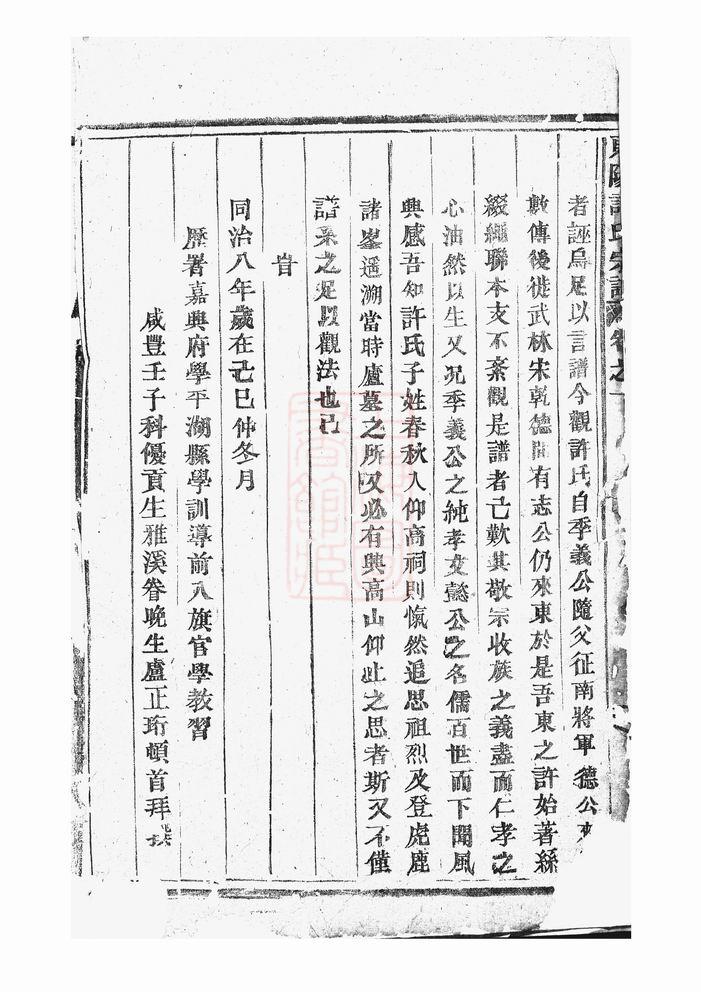 東陽許氏宗譜卷之一
者誣烏足以言譜今觀許氏自季義公隨父征南將軍德公來
數傳後徙武林宋乾德間有志公仍來東於是吾東之許始著緜
綴繩聯本支不紊觀是譜者已歎其敬宗收族之義盡而仁孝之
心油然以生又况季義公之純孝文懿公之名儒百世而下聞風
興感吾知許氏子姓春秋入仰高祠則愾然追思祖烈及登虎鹿
諸峯遥溯當時廬墓之所又必有興高山仰止之思者斯又不僅
譜系之足以觀法也已
旹
同治八年歲在己巳仲冬月
歷署嘉興府學平湖縣學訓導前八旗官學教習
咸豐壬子科優貢生雅溪眷晚生盧正珩頓首拜撰